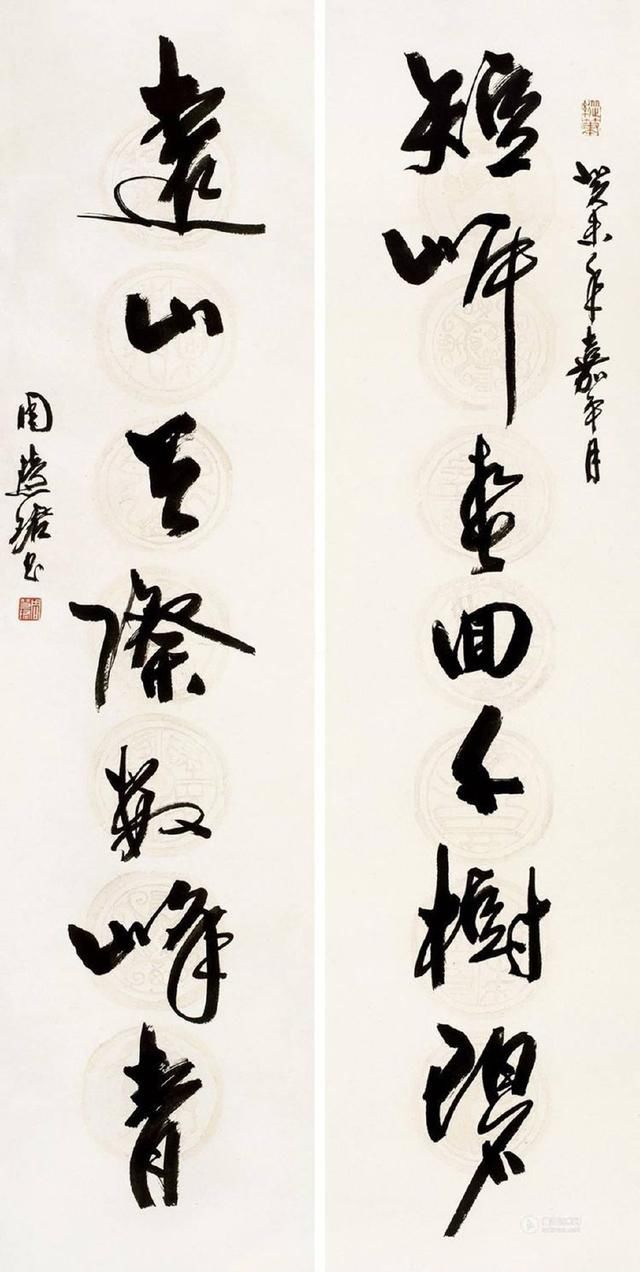 癸未年嘉平月
短岸春回千樹碧
遠山天際數峰青
周慧珺書